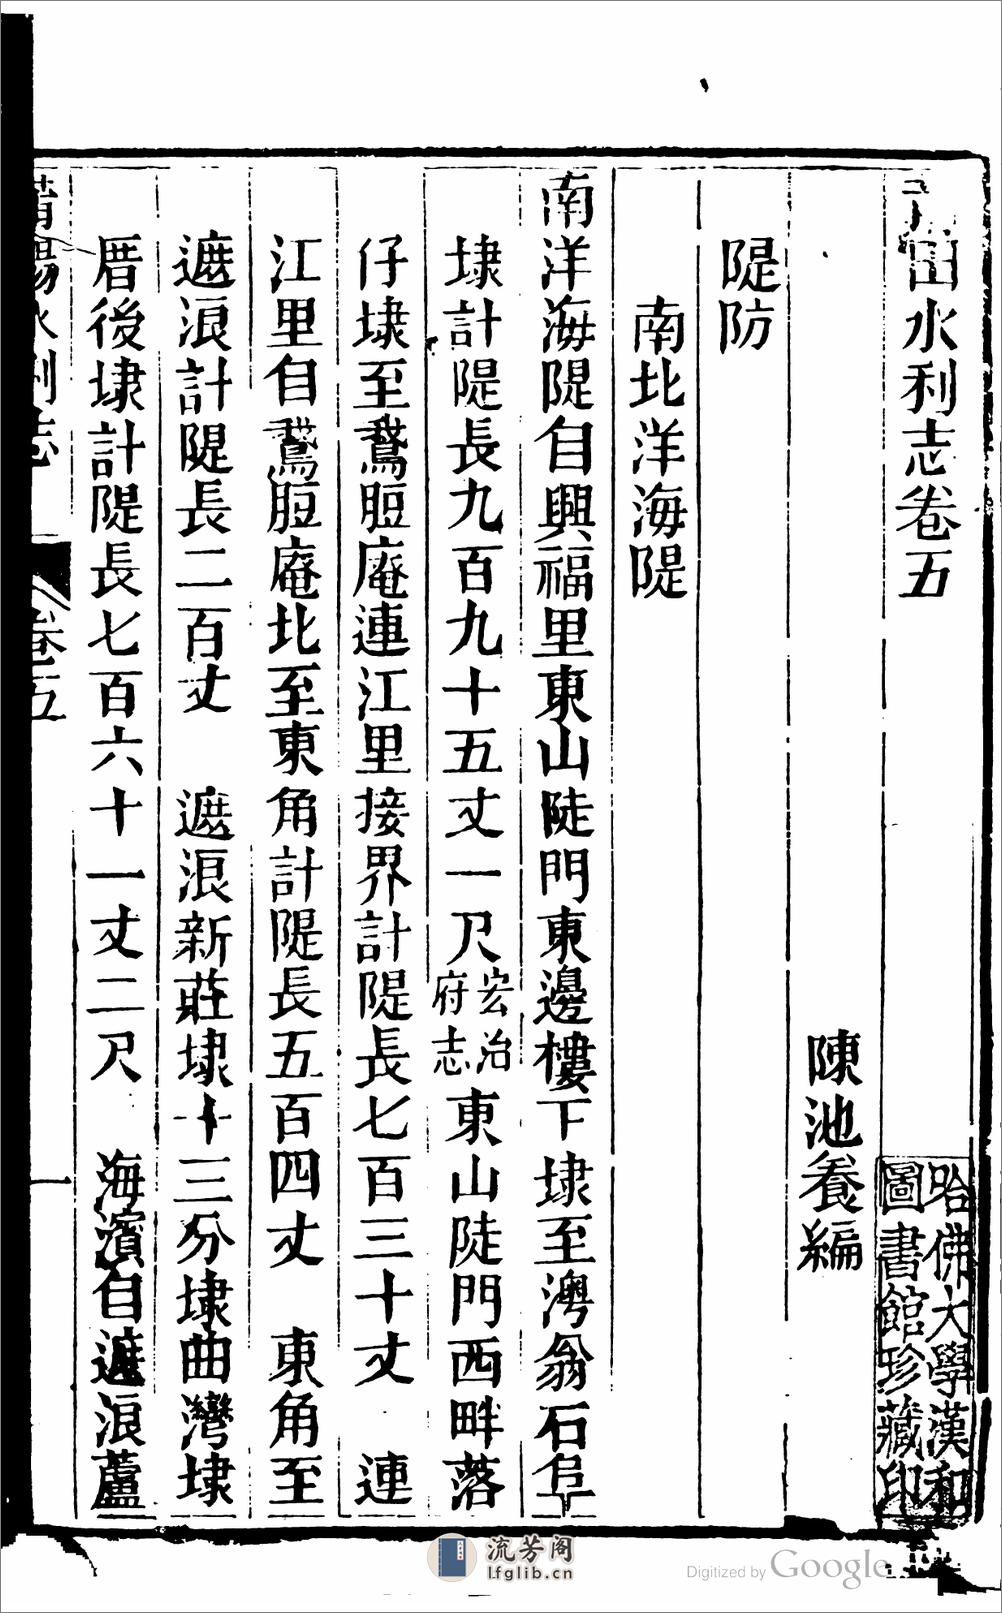 田水利志卷五
哈佛大學漢和
圖書館珍藏印
陳池養編
隄防
南北洋海隄
南洋海隄自興福里東山陡門東邊樓下埭至澳翁石𠂤
埭計隄長九百九十五丈一尺宏治府志東山陡門西畔落
仔埭至鵞脰庵連江里接界計隄長七百三十丈 連
江里自鵞脰庵北至東角計隄長五百四丈 東角至
遮浪計隄長二百丈 遮浪新莊埭十三分埭曲灣埭
厝後埭計隄長七百六十一丈二尺 海濱自遮浪蘆
莆陽水利志 卷五 一
流芳阁
lfglib.cn
Digitized by Google